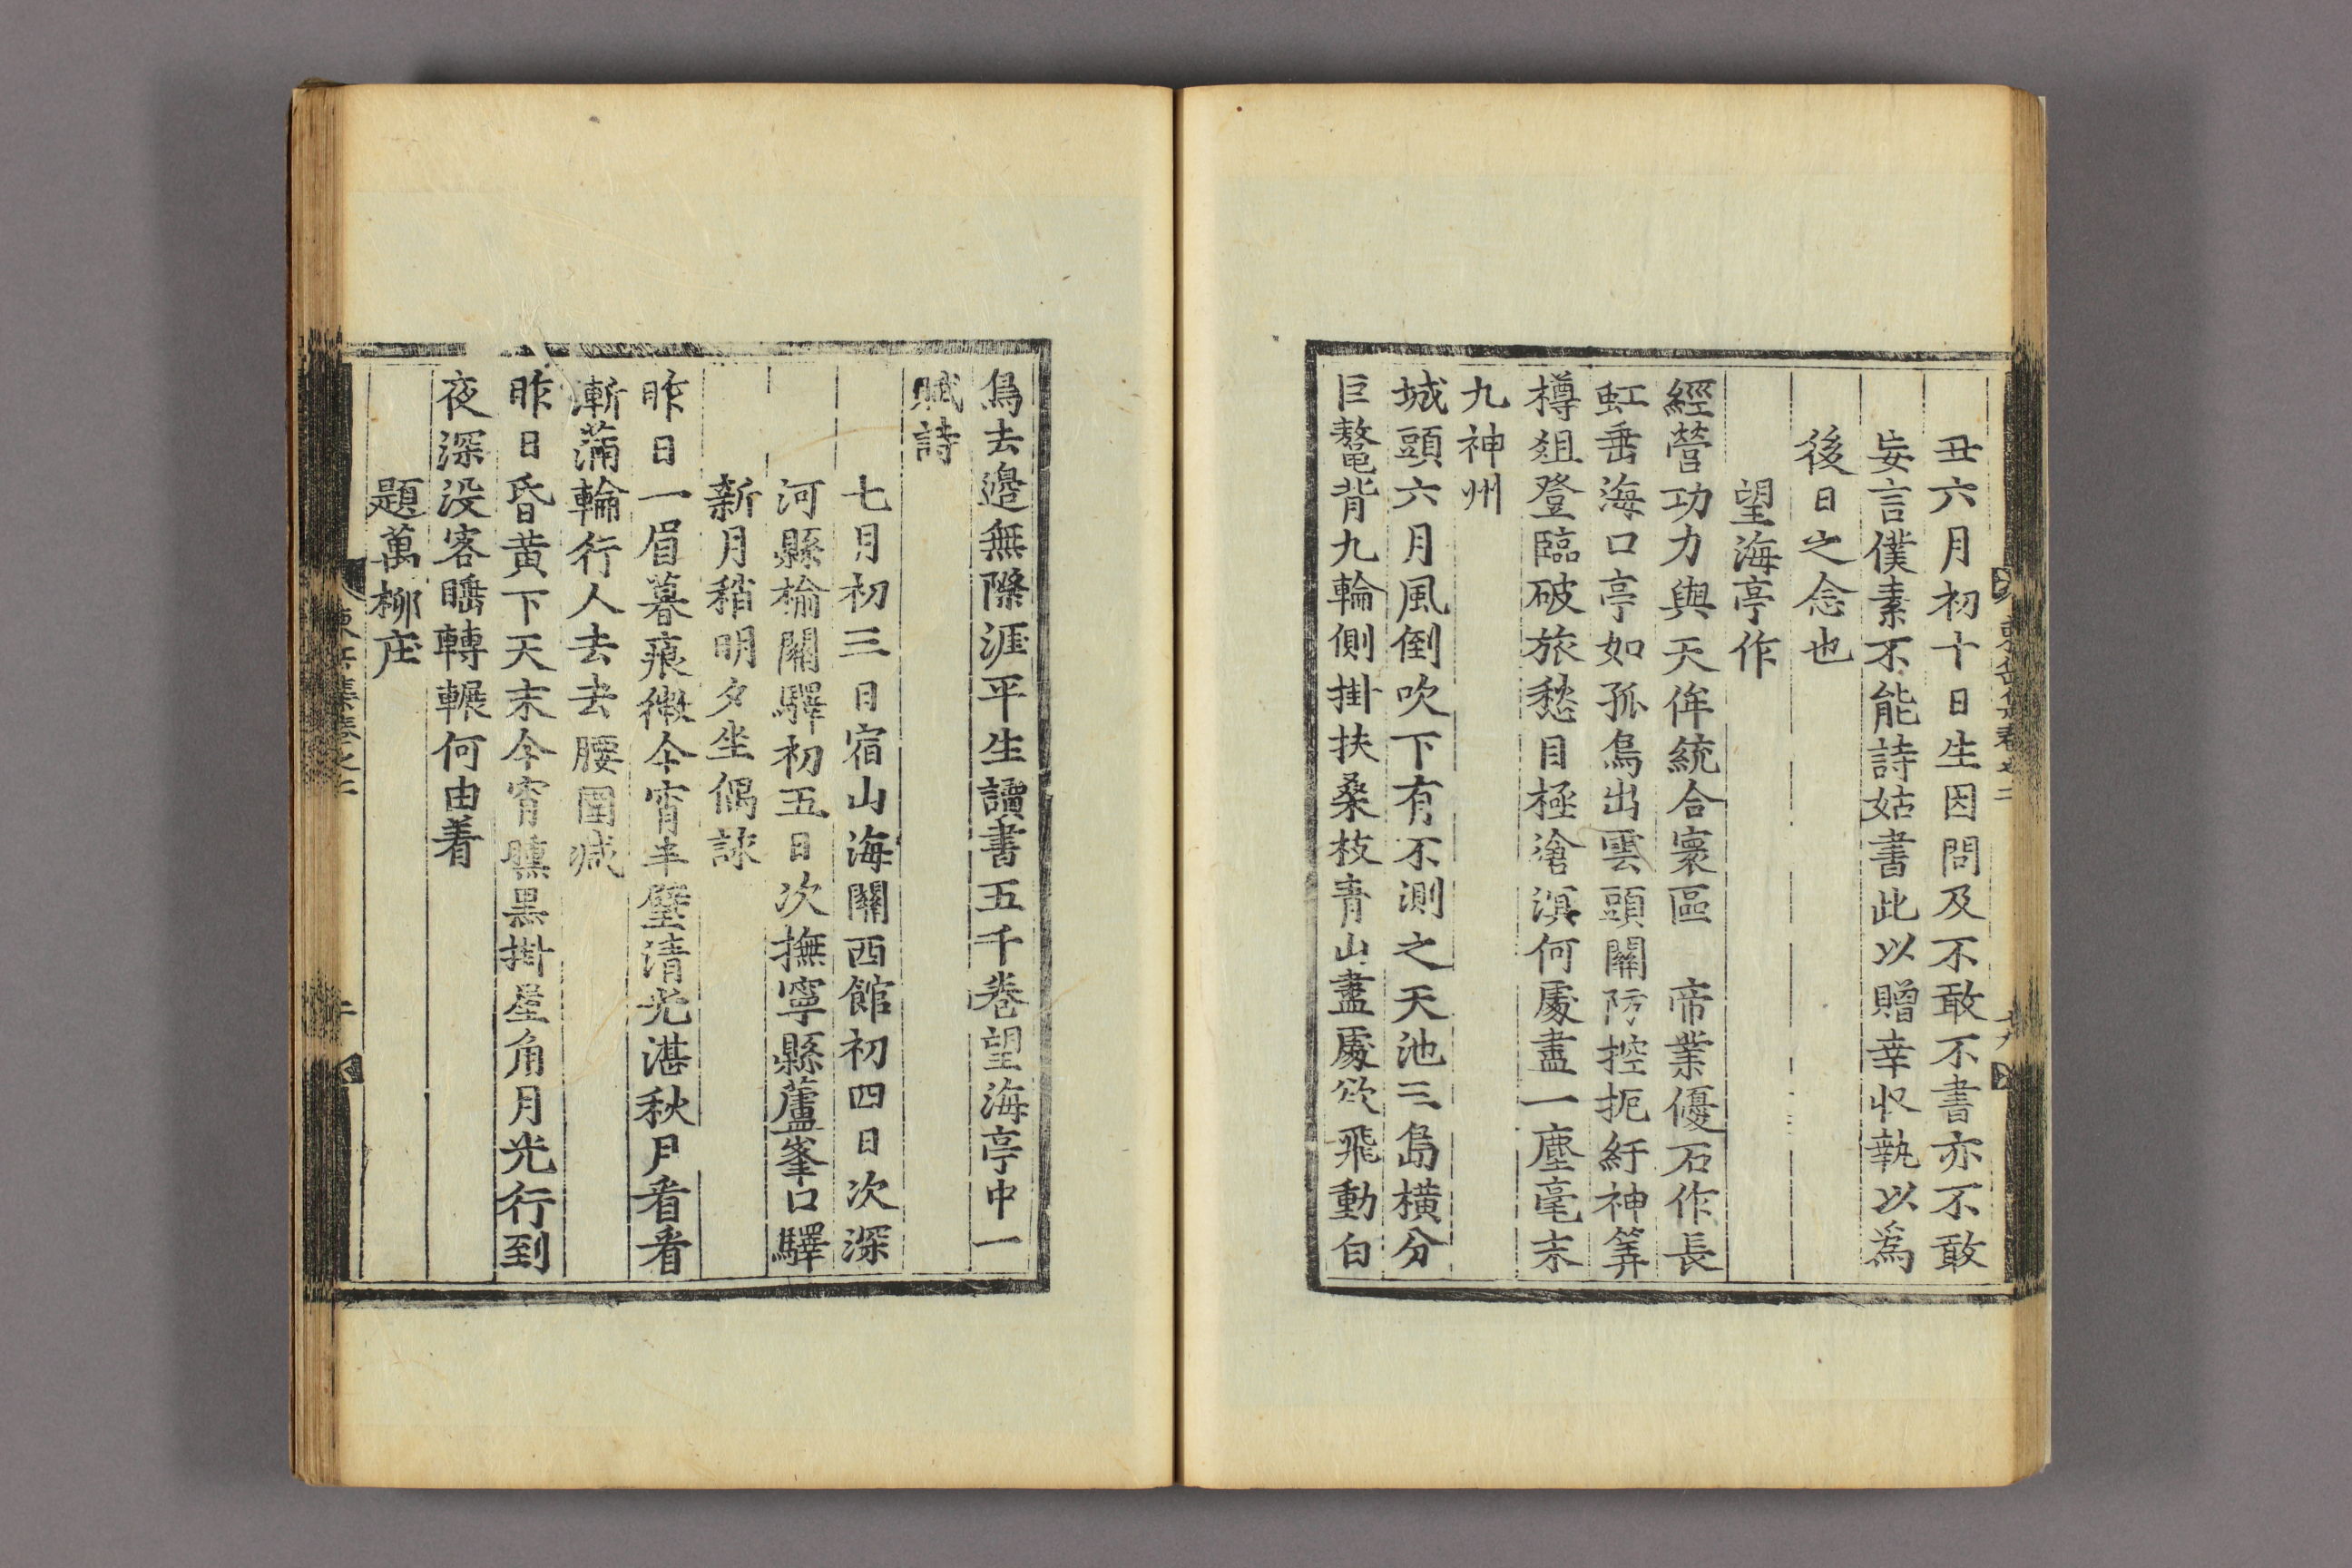 丑六月初十日生因問及不敢不書亦不敢
妄言僕素不能詩姑書此以贈幸收執以爲
後日之念也
望海亭作
經營功力與天侔統合寰區　帝業優石作長
虹垂海口亭如孤鳥出雲頭關防控扼紆神筭
樽俎登臨破旅愁目極滄溟何處盡一塵毫末
九神州
城頭六月風倒吹下有不測之天池三島橫分
巨鼇背九輪側掛扶桑枝青山盡處欲飛動白
鳥去邊無際涯平生讀書五千卷望海亭中一
賦詩
七月初三日宿山海關西館初四日次深
河縣榆關驛初五日次撫寧縣蘆峯口驛
新月稍明夕坐偶詠
昨日一眉暮痕微今宵半璧清光湛秋月看看
漸滿輪行人去去腰圍減
昨日昏黃下天末今宵曛黑掛星角月光行到
夜深沒客睡轉輾何由着
題萬柳庄